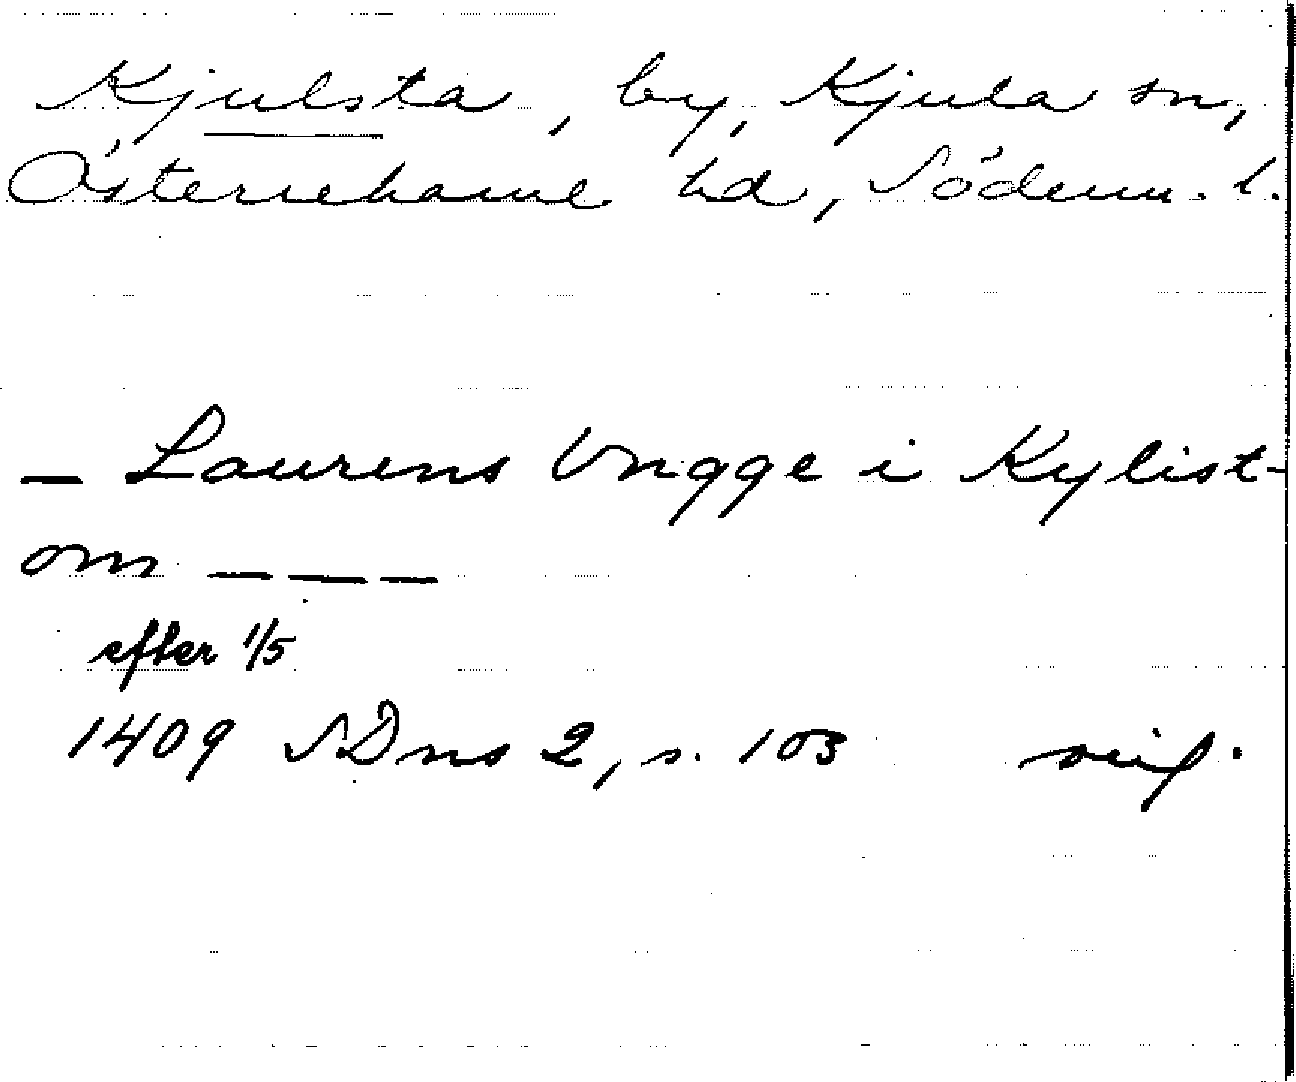 Kjulsta, by, Kjula sn,
Österrekarne hd, Söderm. l.
— Laurens Vngge i Kylist-
om — — —
efter 1/5
1409 SDns 2, s. 103 sig.